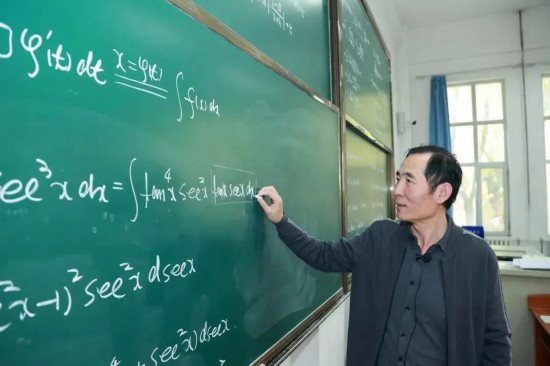 ] φ'(t) dt x=φ(t) ∫f(x)dx
sec³x dx = ∫tan⁴x sec²x tanx secx dx
²x-1)² sec²x dsecx
sec²x) dsecx